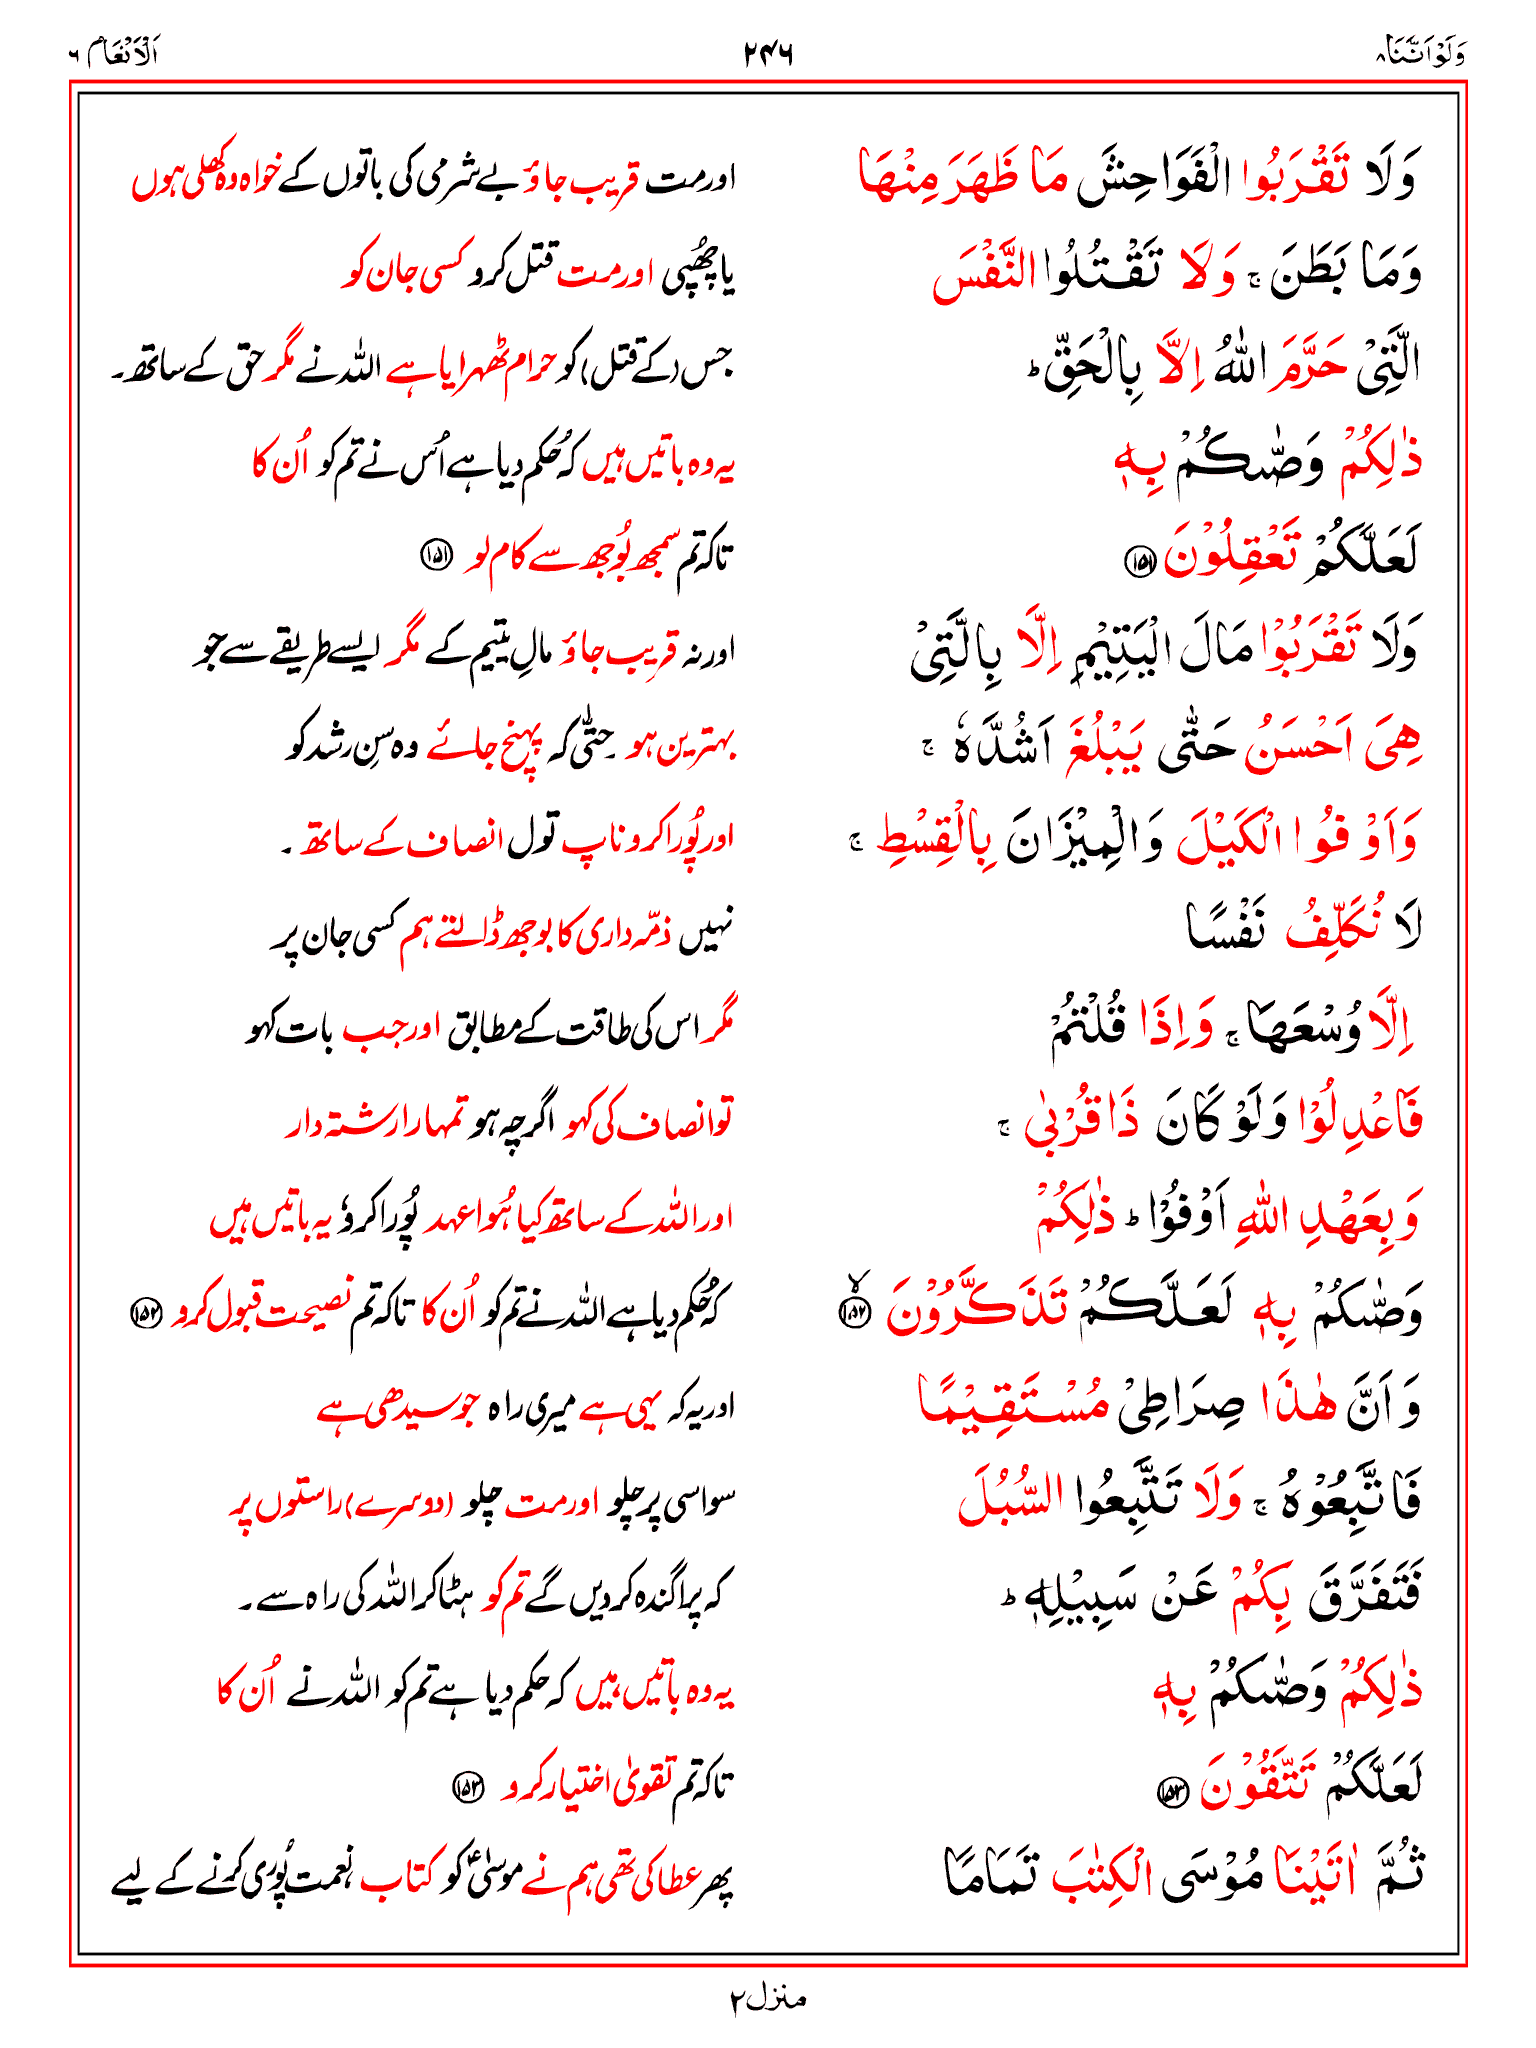 وَلَوْاَنَّنَا ۸
۲۴۶
اَلْاَنْعَام ۶
وَلَا تَقْرَبُوا الْفَوَاحِشَ مَا ظَهَرَ مِنْهَا
اور مت قریب جاؤ بے شرمی کی باتوں کے خواہ وہ کھلی ہوں
وَمَا بَطَنَ ۚ وَلَا تَقْتُلُوا النَّفْسَ
یا چُھپی اور مت قتل کرو کسی جان کو
الَّتِیْ حَرَّمَ اللّٰهُ اِلَّا بِالْحَقِّ ؕ
جس (کے قتل) کو حرام ٹھہرایا ہے اللہ نے مگر حق کے ساتھ۔
ذٰلِكُمْ وَصّٰىكُمْ بِهٖ
یہ وہ باتیں ہیں کہ حُکم دیا ہے اُس نے تم کو اُن کا
لَعَلَّكُمْ تَعْقِلُوْنَ ۝۱۵۱
تاکہ تم سمجھ بُوجھ سے کام لو ۝۱۵۱
وَلَا تَقْرَبُوْا مَالَ الْیَتِیْمِ اِلَّا بِالَّتِیْ
اور نہ قریب جاؤ مالِ یتیم کے مگر ایسے طریقے سے جو
هِیَ اَحْسَنُ حَتّٰی یَبْلُغَ اَشُدَّهٗ ۚ
بہترین ہو۔ حتّٰی کہ پہنچ جائے وہ سِن رشد کو
وَاَوْفُوا الْكَیْلَ وَالْمِیْزَانَ بِالْقِسْطِ ۚ
اور پُورا کرو ناپ تول انصاف کے ساتھ ۔
لَا نُكَلِّفُ نَفْسًا
نہیں ذمّہ داری کا بوجھ ڈالتے ہم کسی جان پر
اِلَّا وُسْعَهَا ۚ وَاِذَا قُلْتُمْ
مگر اس کی طاقت کے مطابق اور جب بات کہو
فَاعْدِلُوْا وَلَوْ كَانَ ذَا قُرْبٰی ۚ
تو انصاف کی کہو اگرچہ ہو تمہارا رشتہ دار
وَبِعَهْدِ اللّٰهِ اَوْفُوْا ؕ ذٰلِكُمْ
اور اللہ کے ساتھ کیا ہُوا عہد پُورا کرو، یہ باتیں ہیں
وَصّٰىكُمْ بِهٖ لَعَلَّكُمْ تَذَكَّرُوْنَ ۝۱۵۲ۙ
کہ حُکم دیا ہے اللہ نے تم کو اُن کا تاکہ تم نصیحت قبول کرو ۝۱۵۲
وَاَنَّ هٰذَا صِرَاطِیْ مُسْتَقِیْمًا
اور یہ کہ یہی ہے میری راہ جو سیدھی ہے
فَاتَّبِعُوْهُ ۚ وَلَا تَتَّبِعُوا السُّبُلَ
سو اسی پر چلو اور مت چلو (دوسرے) راستوں پر
فَتَفَرَّقَ بِكُمْ عَنْ سَبِیْلِهٖ ؕ
کہ پراگندہ کر دیں گے تم کو ہٹا کر اللہ کی راہ سے۔
ذٰلِكُمْ وَصّٰىكُمْ بِهٖ
یہ وہ باتیں ہیں کہ حکم دیا ہے تم کو اللہ نے اُن کا
لَعَلَّكُمْ تَتَّقُوْنَ ۝۱۵۳
تاکہ تم تقویٰ اختیار کرو ۝۱۵۳
ثُمَّ اٰتَیْنَا مُوْسَی الْكِتٰبَ تَمَامًا
پھر عطا کی تھی ہم نے موسیٰؑ کو کتاب نعمت پُوری کرنے کے لیے
منزل ۲